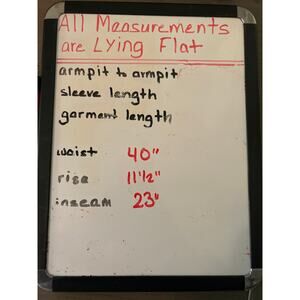 All Measurements
are Lying Flat
armpit to armpit
sleeve length
garment length
waist 40"
rise 11 1/2"
inseam 23"